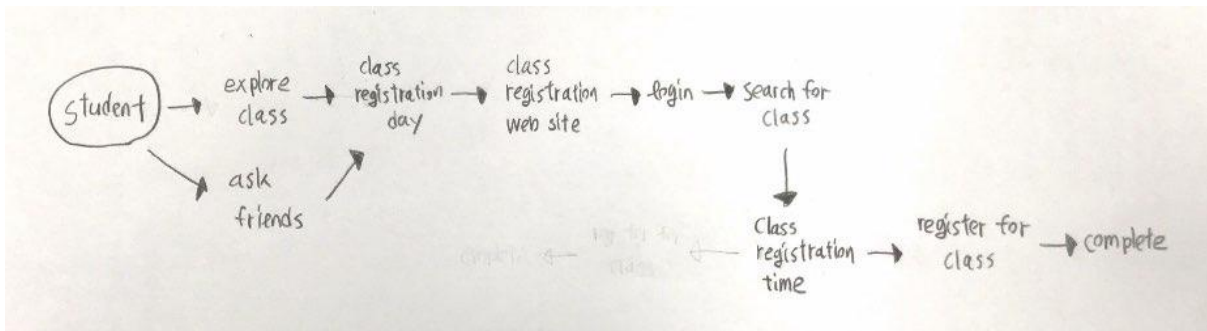 student
explore
class
class
registration
day
class
registration
web site
login
search for
class
ask
friends
Class
registration
time
register for
class
complete